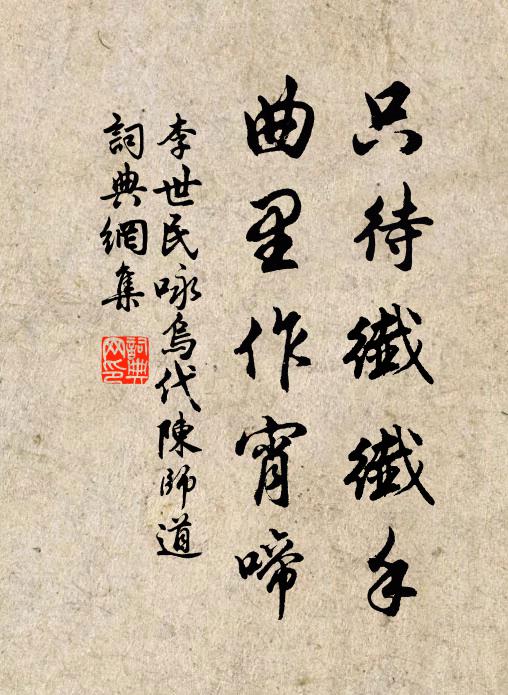 只待纖纖手
曲里作宵啼
李世民咏烏代陳師道
詞典網集
詞典網印